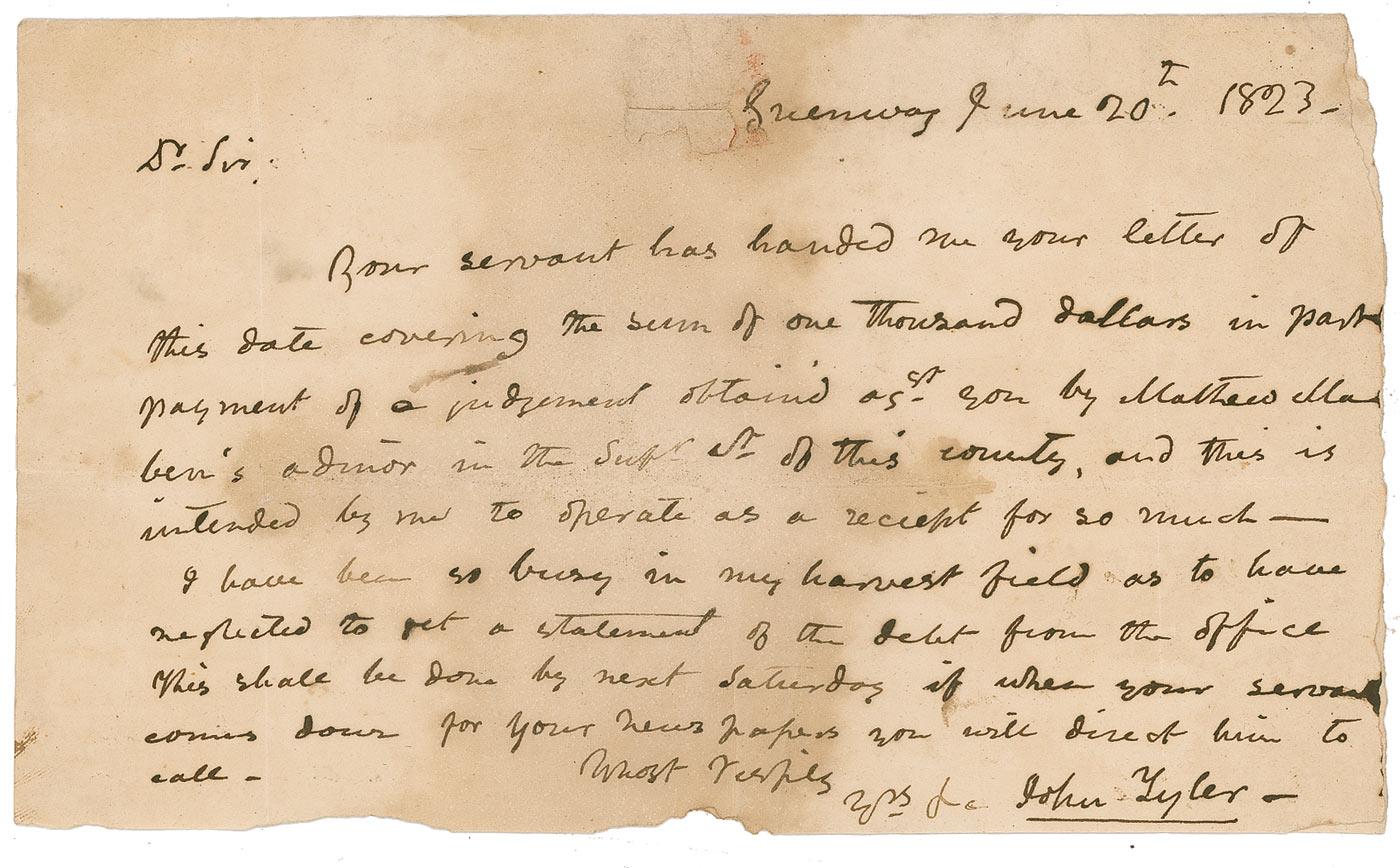 Greenway June 20th. 1823-
Dr Sir,
Your servant has handed me your letter of
this date covering the sum of one thousand dollars in part
payment of a judgement obtain'd agst you by Mathew Ma
ben's admor in the Supr Ct of this county, and this is
intended by me to operate as a reciept for so much —
I have been so busy in my harvest field as to have
neglected to get a statement of the debt from the office
This shall be done by next Saturday if when your servant
comes down for your newspapers you will direct him to
call -
Most respfly
yrs &c John Tyler -